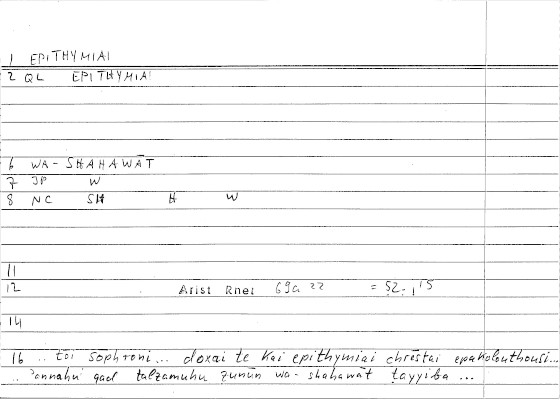 1 EPITHYMIAI
2 QL EPITHYMIAI
6 WA-SHAHAWĀT
7 JP W
8 NC SH H W
11
12 Arist Rhet 69a 22 = 52,15
14
16 .. tōi sōphroni... doxai te kai epithymiai chrēstai epakolouthousi...
.. 'annahū qad talzamuhu ẓunūn wa-shahawāt ṭayyiba ...